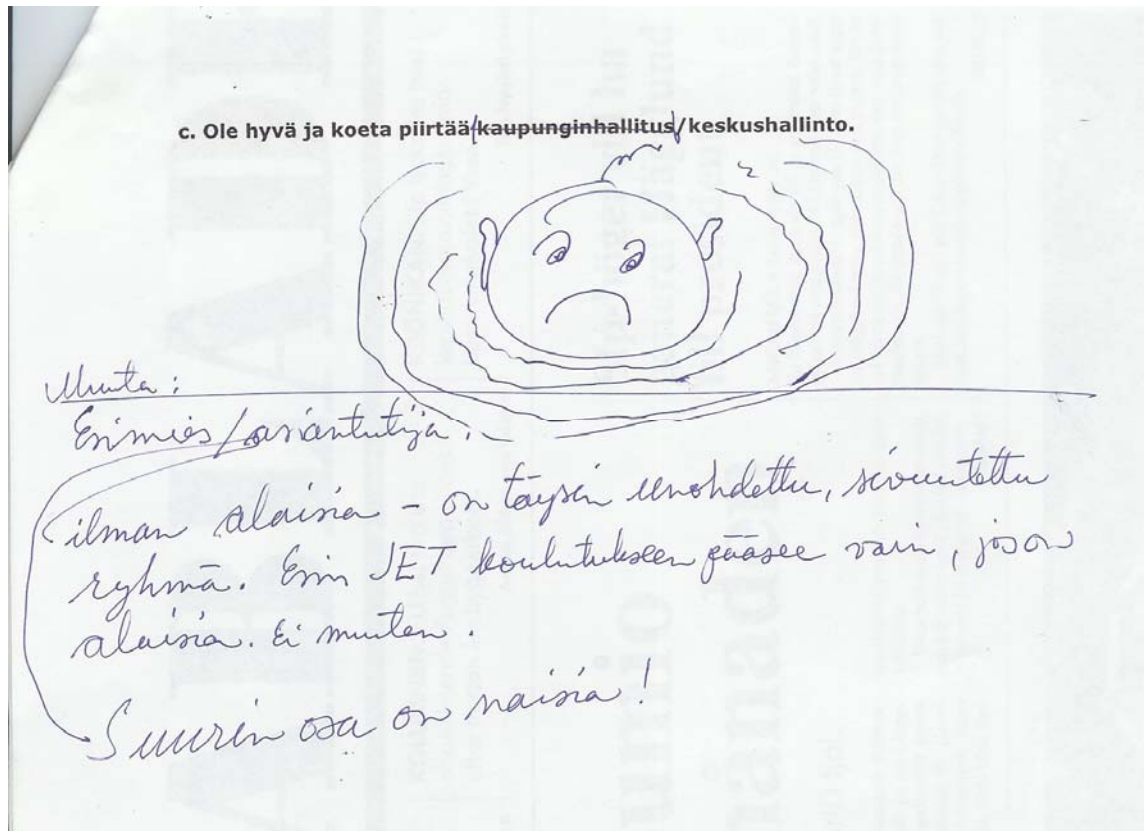 c. Ole hyvä ja koeta piirtää/kaupunginhallitus/keskushallinto.
Muuta:
Esimies/asiantutija.
ilman alaisia - on täysin unohdettu, sivuutettu
ryhmä. Esim JET koulutukseen pääsee vain, jos on
alaisia. Ei muuten.
Suurin osa on naisia!